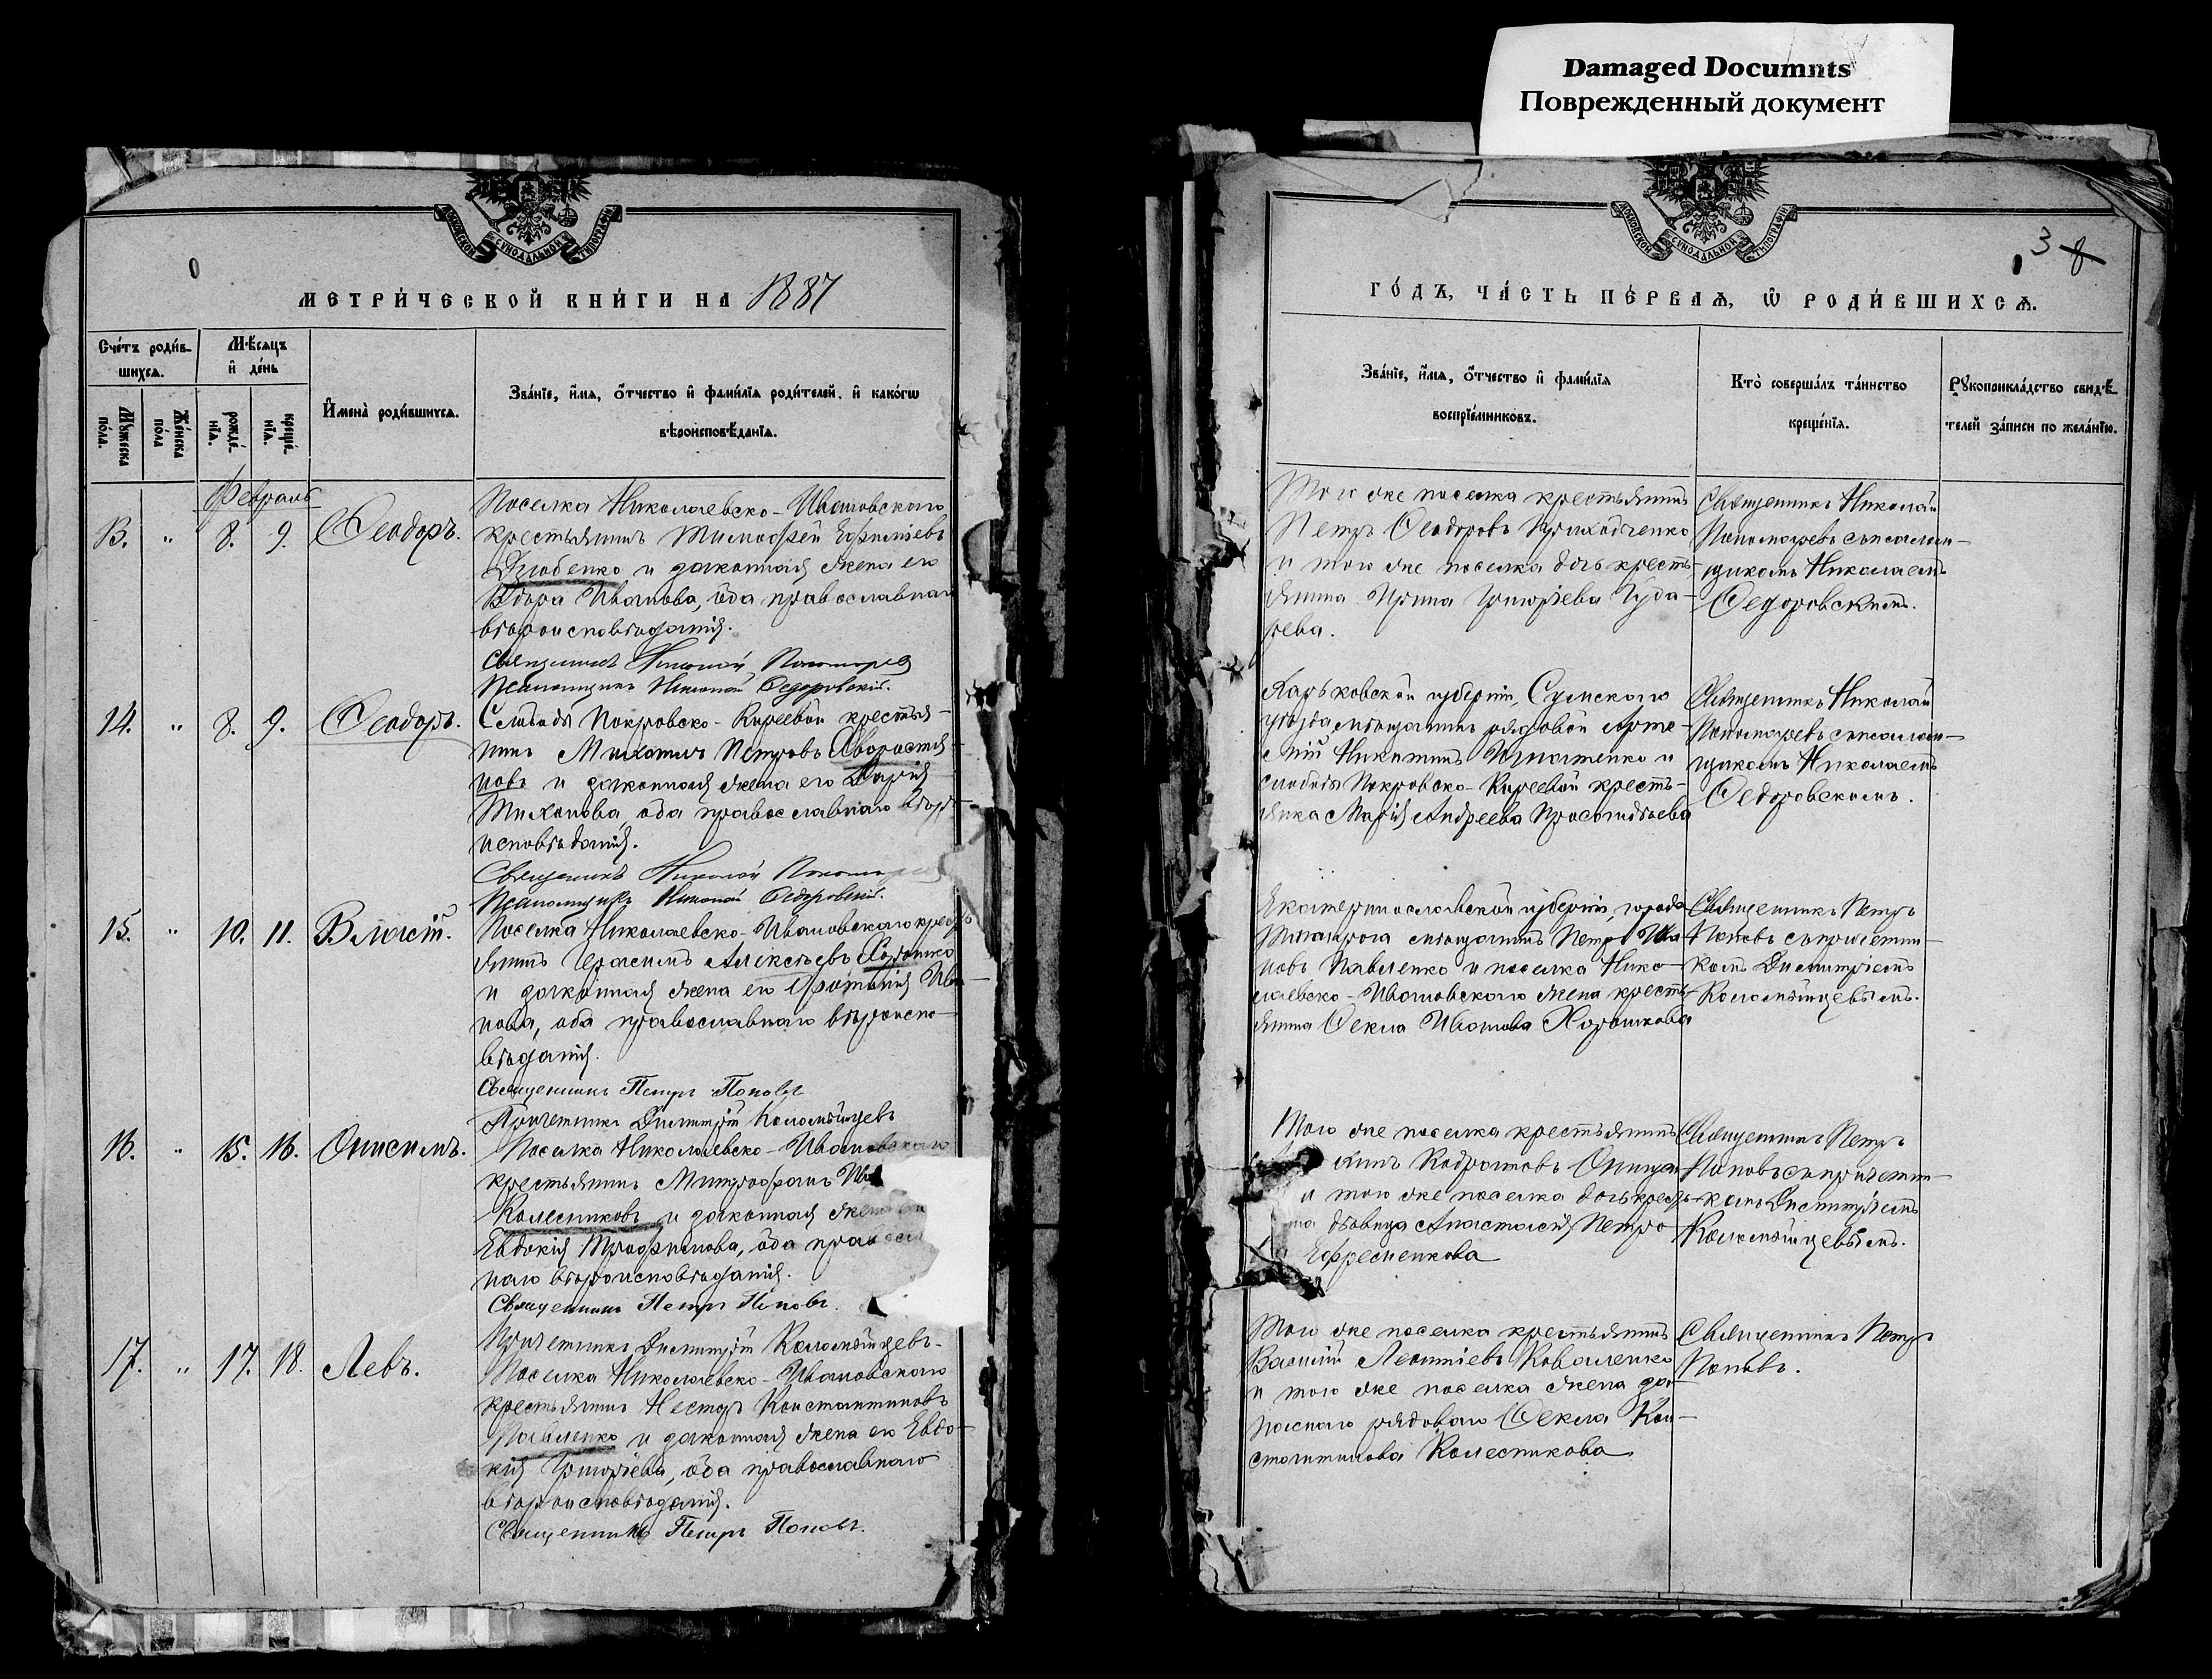 Damaged Documnts
Поврежденный документ
МОСКОВСКОЙ СѴНОДАЛЬНОЙ ТИПОГРАФІИ
МЕТРИ́ЧЕСКОЙ КНИ́ГИ НА 1887
Сче́тъ роди́в-
шихсѧ.
Мѣ́сѧцъ
и҆ де́нь
Мꙋ́жеска по́ла.
Же́нска по́ла
рожде́нїѧ.
креще́нїѧ.
И҆мена̀ роди́вшихсѧ.
Зва́нїе, и҆́мѧ, ѻ҆́тчество и҆ фами́лїѧ роди́телей, и҆ како́гѡ
вѣроисповѣ́данїѧ.
Февраль
13. " 8. 9. Ѳеодоръ.
Поселка Николаевско-Ивановскаго
крестьянинъ Тимофей Ефиміевъ
Дзюбенко и законная жена его
Ивановна, оба православнаго
вѣроисповѣданія.
Священникъ Николай Пономаревъ
Псаломщикъ Николай Ѳедоровскій.
14. " 8. 9. Ѳеодоръ.
Слободы Покровско-Киреевой крестья-
нинъ Михаилъ Петровъ Хворостя-
новъ и законная жена его Дарія
Тихонова, оба православнаго вѣро-
исповѣданія.
Священникъ Николай Пономарев
Псаломщикъ Николай Ѳедоровскій.
15. " 10. 11. Власій.
Поселка Николаевско-Ивановскаго кресть
янинъ Герасимъ Алексѣевъ
и законная жена его Ива-
нова, оба православнаго вѣроиспо-
вѣданія.
Священникъ Петръ Поповъ
Причетникъ Димитрій Коломыйцевъ
16. " 15. 16. Онисимъ.
Поселка Николаевско-Ивановскаго
крестьянинъ Митрофанъ
Колесниковъ и законная жена его
Евдокія Трофимова, оба правосла
наго вѣроисповѣданія.
Священникъ Петръ Поповъ.
Причетникъ Димитрій Коломыйцевъ.
17. " 17. 18. Левъ.
Поселка Николаевско-Ивановскаго
крестьянинъ Несторъ Константиновъ
Павленко и законная жена его Евдо-
кія Григорьева, оба православнаго
вѣроисповѣданія.
Священникъ Петръ Поповъ.
3 8
МОСКОВСКОЙ СѴНОДАЛЬНОЙ ТИПОГРАФІИ
ГО́ДЪ, ЧА́СТЬ ПЕ́РВАѦ, Ѽ РОДИ́ВШИХСѦ.
Зва́нїе, и҆́мѧ, ѻ҆́тчество и҆ фами́лїѧ
воспрїе́мниковъ.
Кто̀ соверша́лъ та́инство
креще́нїѧ.
Рꙋкоприкла́дство свидѣ́-
телей за́писи по жела́нїю.
Того же поселка крестьянинъ
Петръ Ѳеодоровъ Приходченко
и того же поселка дочь кресть-
янина Ирина Григорьева Гуда-
рева.
Священникъ Николай
Пономаревъ съ псалом-
щикомъ Николаемъ
Ѳедоровскимъ.
Харьковской губерніи, Сумскаго
уѣзда мѣщанинъ рядовой Арте-
мій Никитинъ Игнатенко и
слободы Покровско-Киреевой кресть-
янка Марія Андреева
Священникъ Николай
Пономаревъ съ псалом-
щикомъ Николаемъ
Ѳедоровскимъ.
Екатеринославской губерніи, города
Таганрога мѣщанинъ Петръ Ива-
новъ Павленко и поселка Нико-
лаевско-Ивановскаго жена кресть-
янина Ѳекла Иванова Хорошкова
Священникъ Петръ
Поповъ съ причетни-
комъ Димитріемъ
Коломыйцевымъ.
Того же поселка крестьянинъ
Кодратовъ Онища
и того же поселка дочь кресть-
на дѣвица Анастасія Петро
Ефременкова
Священникъ Петръ
Поповъ съ причетни-
комъ Димитріемъ
Коломыйцевымъ.
Того же поселка крестьянинъ
Василій Леонтіевъ Коваленко
и того же поселка жена за-
паснаго рядоваго Ѳекла Кон-
стантинова Колесникова
Священникъ Петръ
Поповъ.